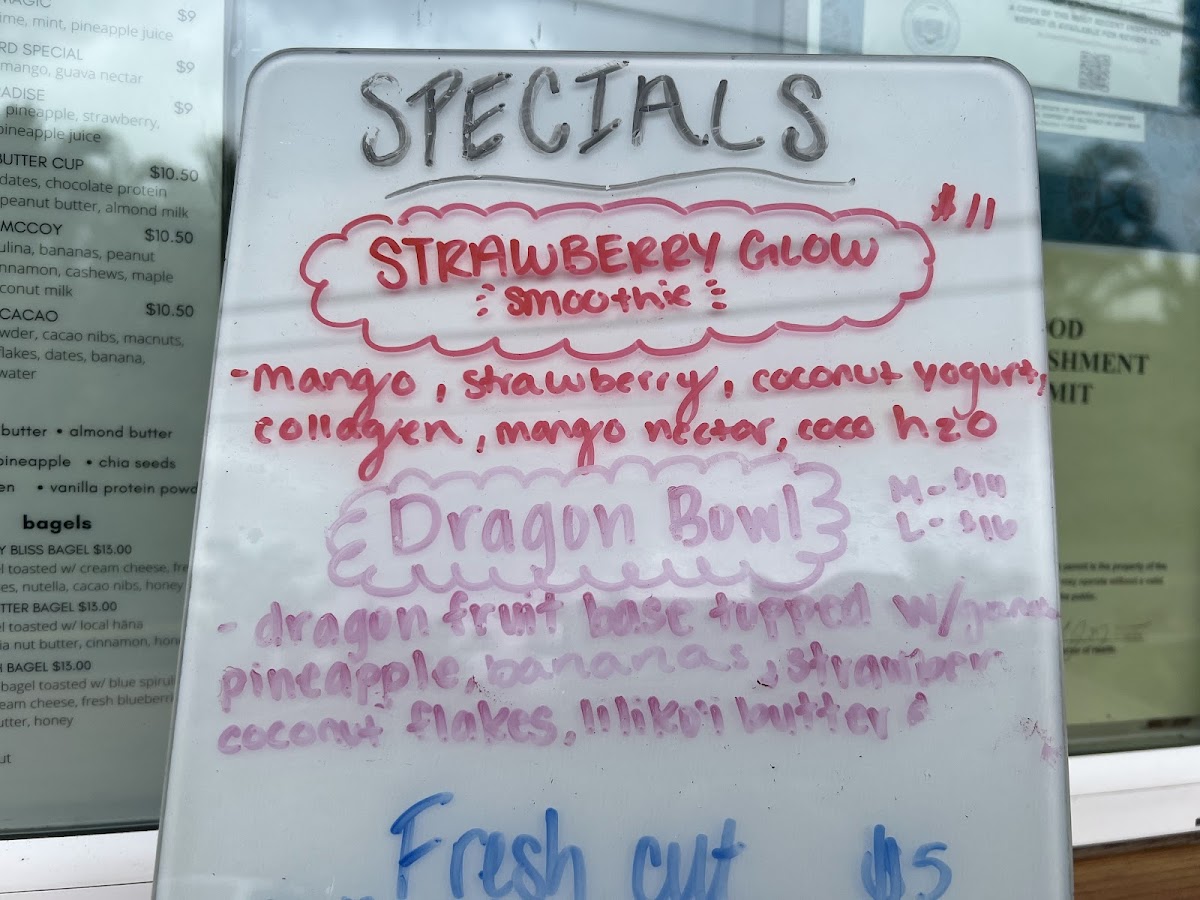 $9
ime, mint, pineapple juice
RD SPECIAL
$9
mango, guava nectar
ADISE
$9
pineapple, strawberry,
pineapple juice
BUTTER CUP
$10.50
dates, chocolate protein
peanut butter, almond milk
MCCOY
$10.50
ulina, bananas, peanut
nnamon, cashews, maple
conut milk
$10.50
CACAO
wder, cacao nibs, macnuts,
flakes, dates, banana,
water
butter • almond butter
pineapple • chia seeds
en • vanilla protein powd
bagels
Y BLISS BAGEL $13.00
l toasted w/ cream cheese, fre
es, nutella, cacao nibs, honey
TTER BAGEL $13.00
el toasted w/ local hāna
ia nut butter, cinnamon, hon
H BAGEL $13.00
bagel toasted w/ blue spirul
eam cheese, fresh blueberri
utter, honey
ut
SPECIALS
$11
STRAWBERRY GLOW
smoothie
-mango, strawberry, coconut yogurt,
collagen, mango nectar, coco h2o
Dragon Bowl
M- $14
L- $16
- dragon fruit base topped w/
pineapple, bananas, strawber
coconut flakes, lilikoi butter &
Fresh cut $5
A COPY OF THE MOST RECENT INSPECTION
REPORT IS AVAILABLE FOR REVIEW AT:
OD
SHMENT
MIT
permit is the property of the
may operate without a valid